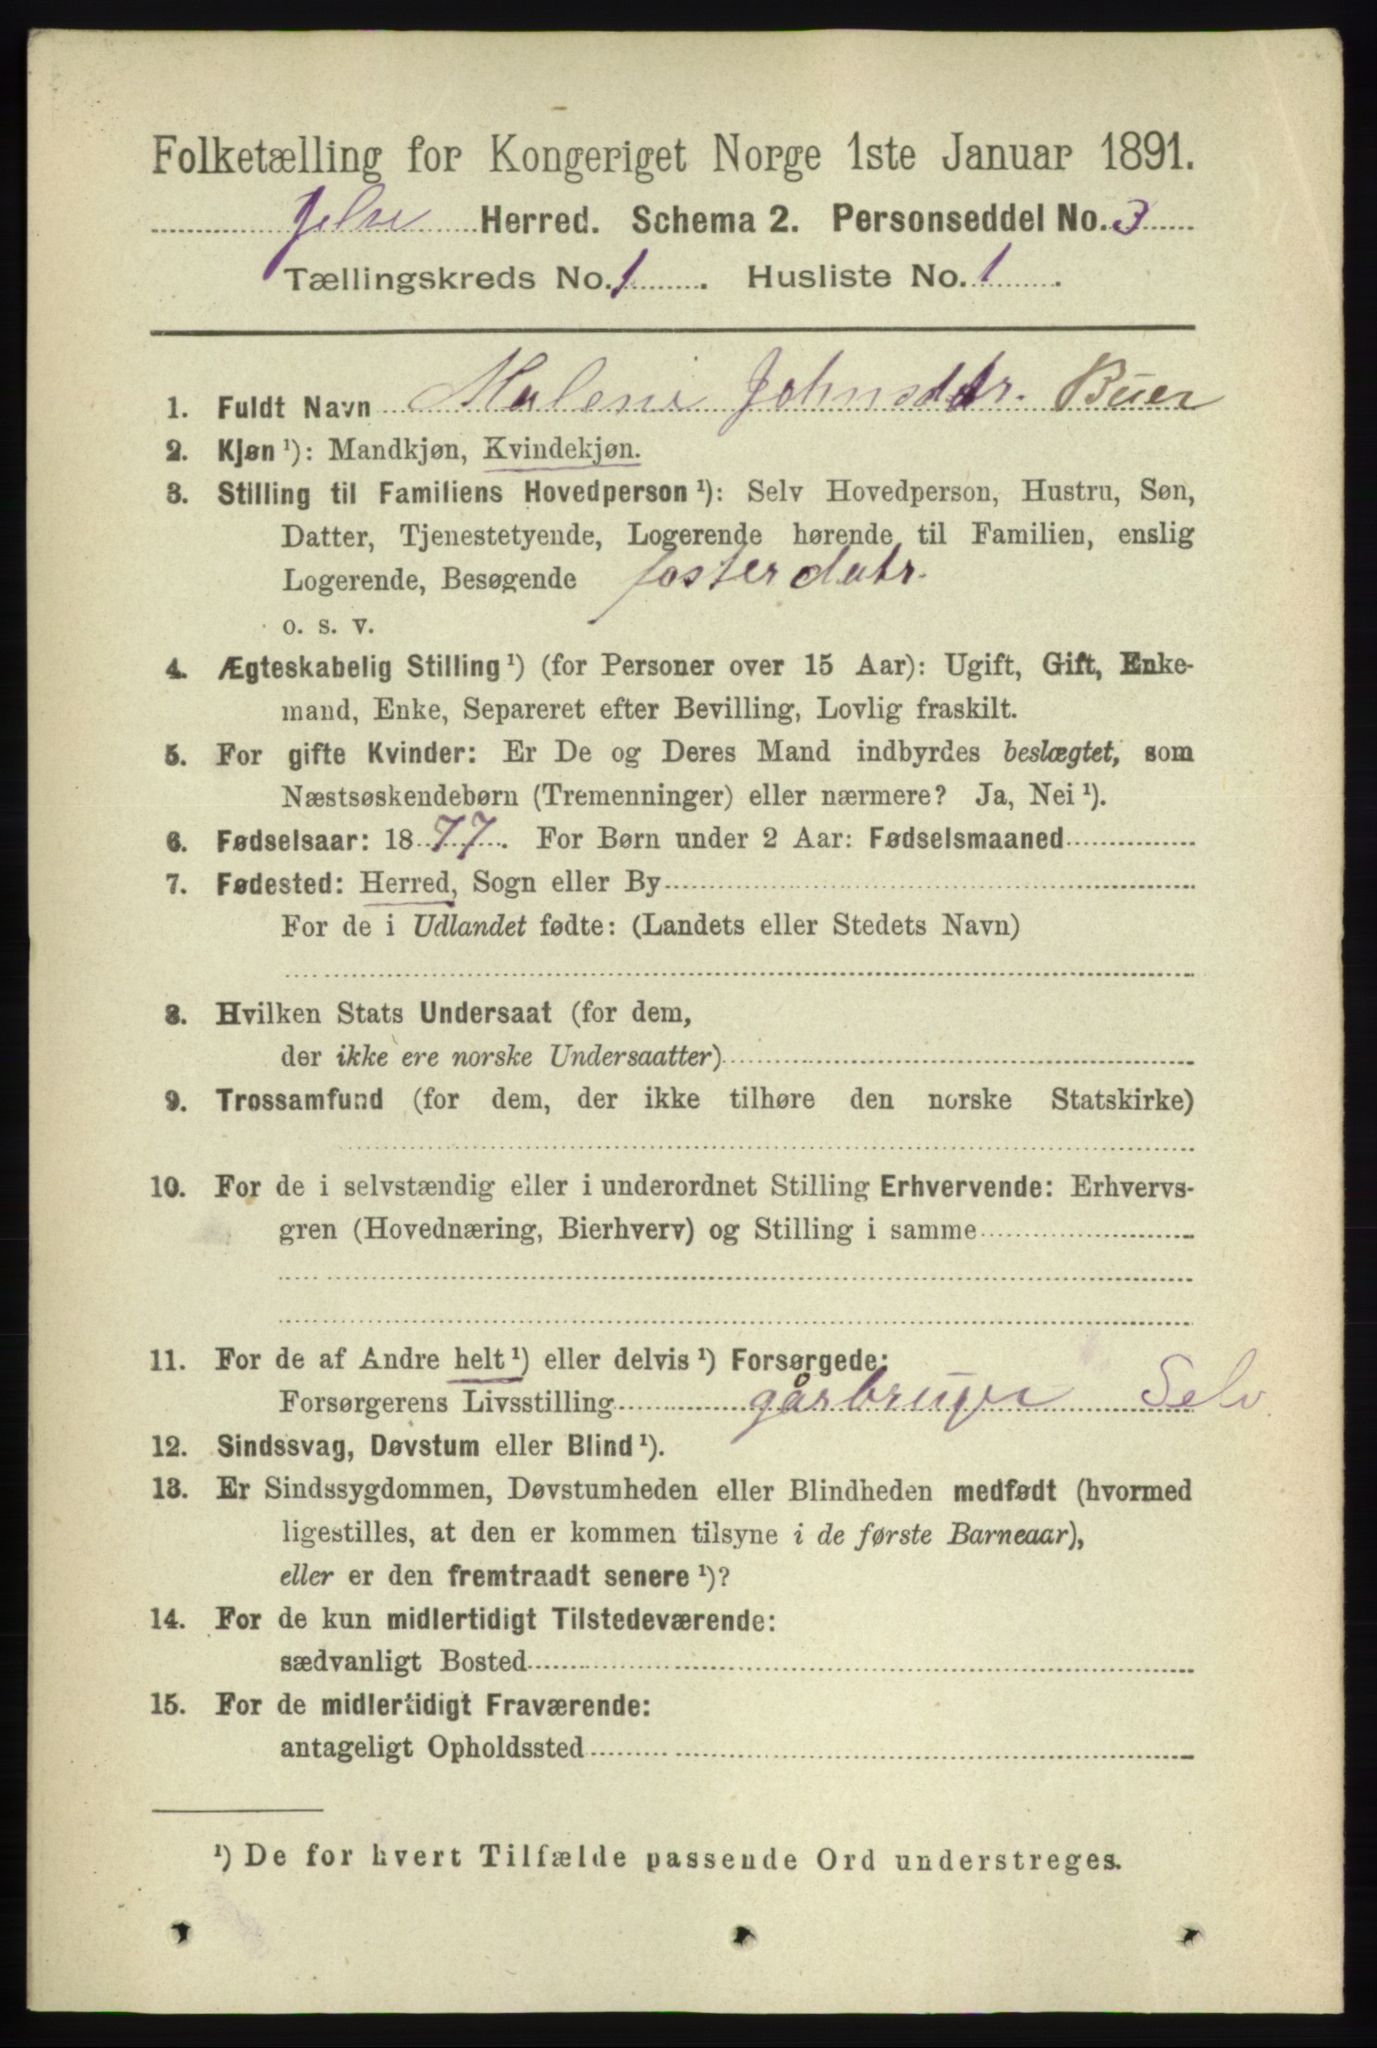 Folketælling for Kongeriget Norge 1ste Januar 1891.
Jelse Herred. Schema 2. Personseddel No. 3
Tællingskreds No. 1. Husliste No. 1.
1. Fuldt Navn Malene Johnsdtr. Buer
2. Kjøn ¹): Mandkjøn, Kvindekjøn.
3. Stilling til Familiens Hovedperson ¹): Selv Hovedperson, Hustru, Søn,
Datter, Tjenestetyende, Logerende hørende til Familien, enslig
Logerende, Besøgende fosterdatr.
o. s. v.
4. Ægteskabelig Stilling ¹) (for Personer over 15 Aar): Ugift, Gift, Enke-
mand, Enke, Separeret efter Bevilling, Lovlig fraskilt.
5. For gifte Kvinder: Er De og Deres Mand indbyrdes beslægtet, som
Næstsøskendebørn (Tremenninger) eller nærmere? Ja, Nei ¹).
6. Fødselsaar: 1877. For Børn under 2 Aar: Fødselsmaaned
7. Fødested: Herred, Sogn eller By
For de i Udlandet fødte: (Landets eller Stedets Navn)
8. Hvilken Stats Undersaat (for dem,
der ikke ere norske Undersaatter)
9. Trossamfund (for dem, der ikke tilhøre den norske Statskirke)
10. For de i selvstændig eller i underordnet Stilling Erhvervende: Erhvervs-
gren (Hovednæring, Bierhverv) og Stilling i samme
11. For de af Andre helt ¹) eller delvis ¹) Forsørgede:
Forsørgerens Livsstilling Selv
12. Sindssvag, Døvstum eller Blind ¹).
13. Er Sindssygdommen, Døvstumheden eller Blindheden medfødt (hvormed
ligestilles, at den er kommen tilsyne i de første Barneaar),
eller er den fremtraadt senere ¹)?
14. For de kun midlertidigt Tilstedeværende:
sædvanligt Bosted
15. For de midlertidigt Fraværende:
antageligt Opholdssted
¹) De for hvert Tilfælde passende Ord understreges.